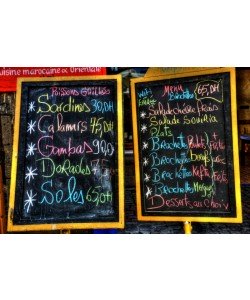 uisine marocaine & Orientale
Poissons Grillés
* Sardines 30,DH
* Calamars 45,DH
* Gambas 90,D
* Dorades
* Soles 65,DH
Menu
65,DH
* Salade
* Salade
Plats
* Brochettes Poulet + Frites
* Brochettes boeuf
* Brochettes Kefta + Frites
* Brochettes
Desserts au choix